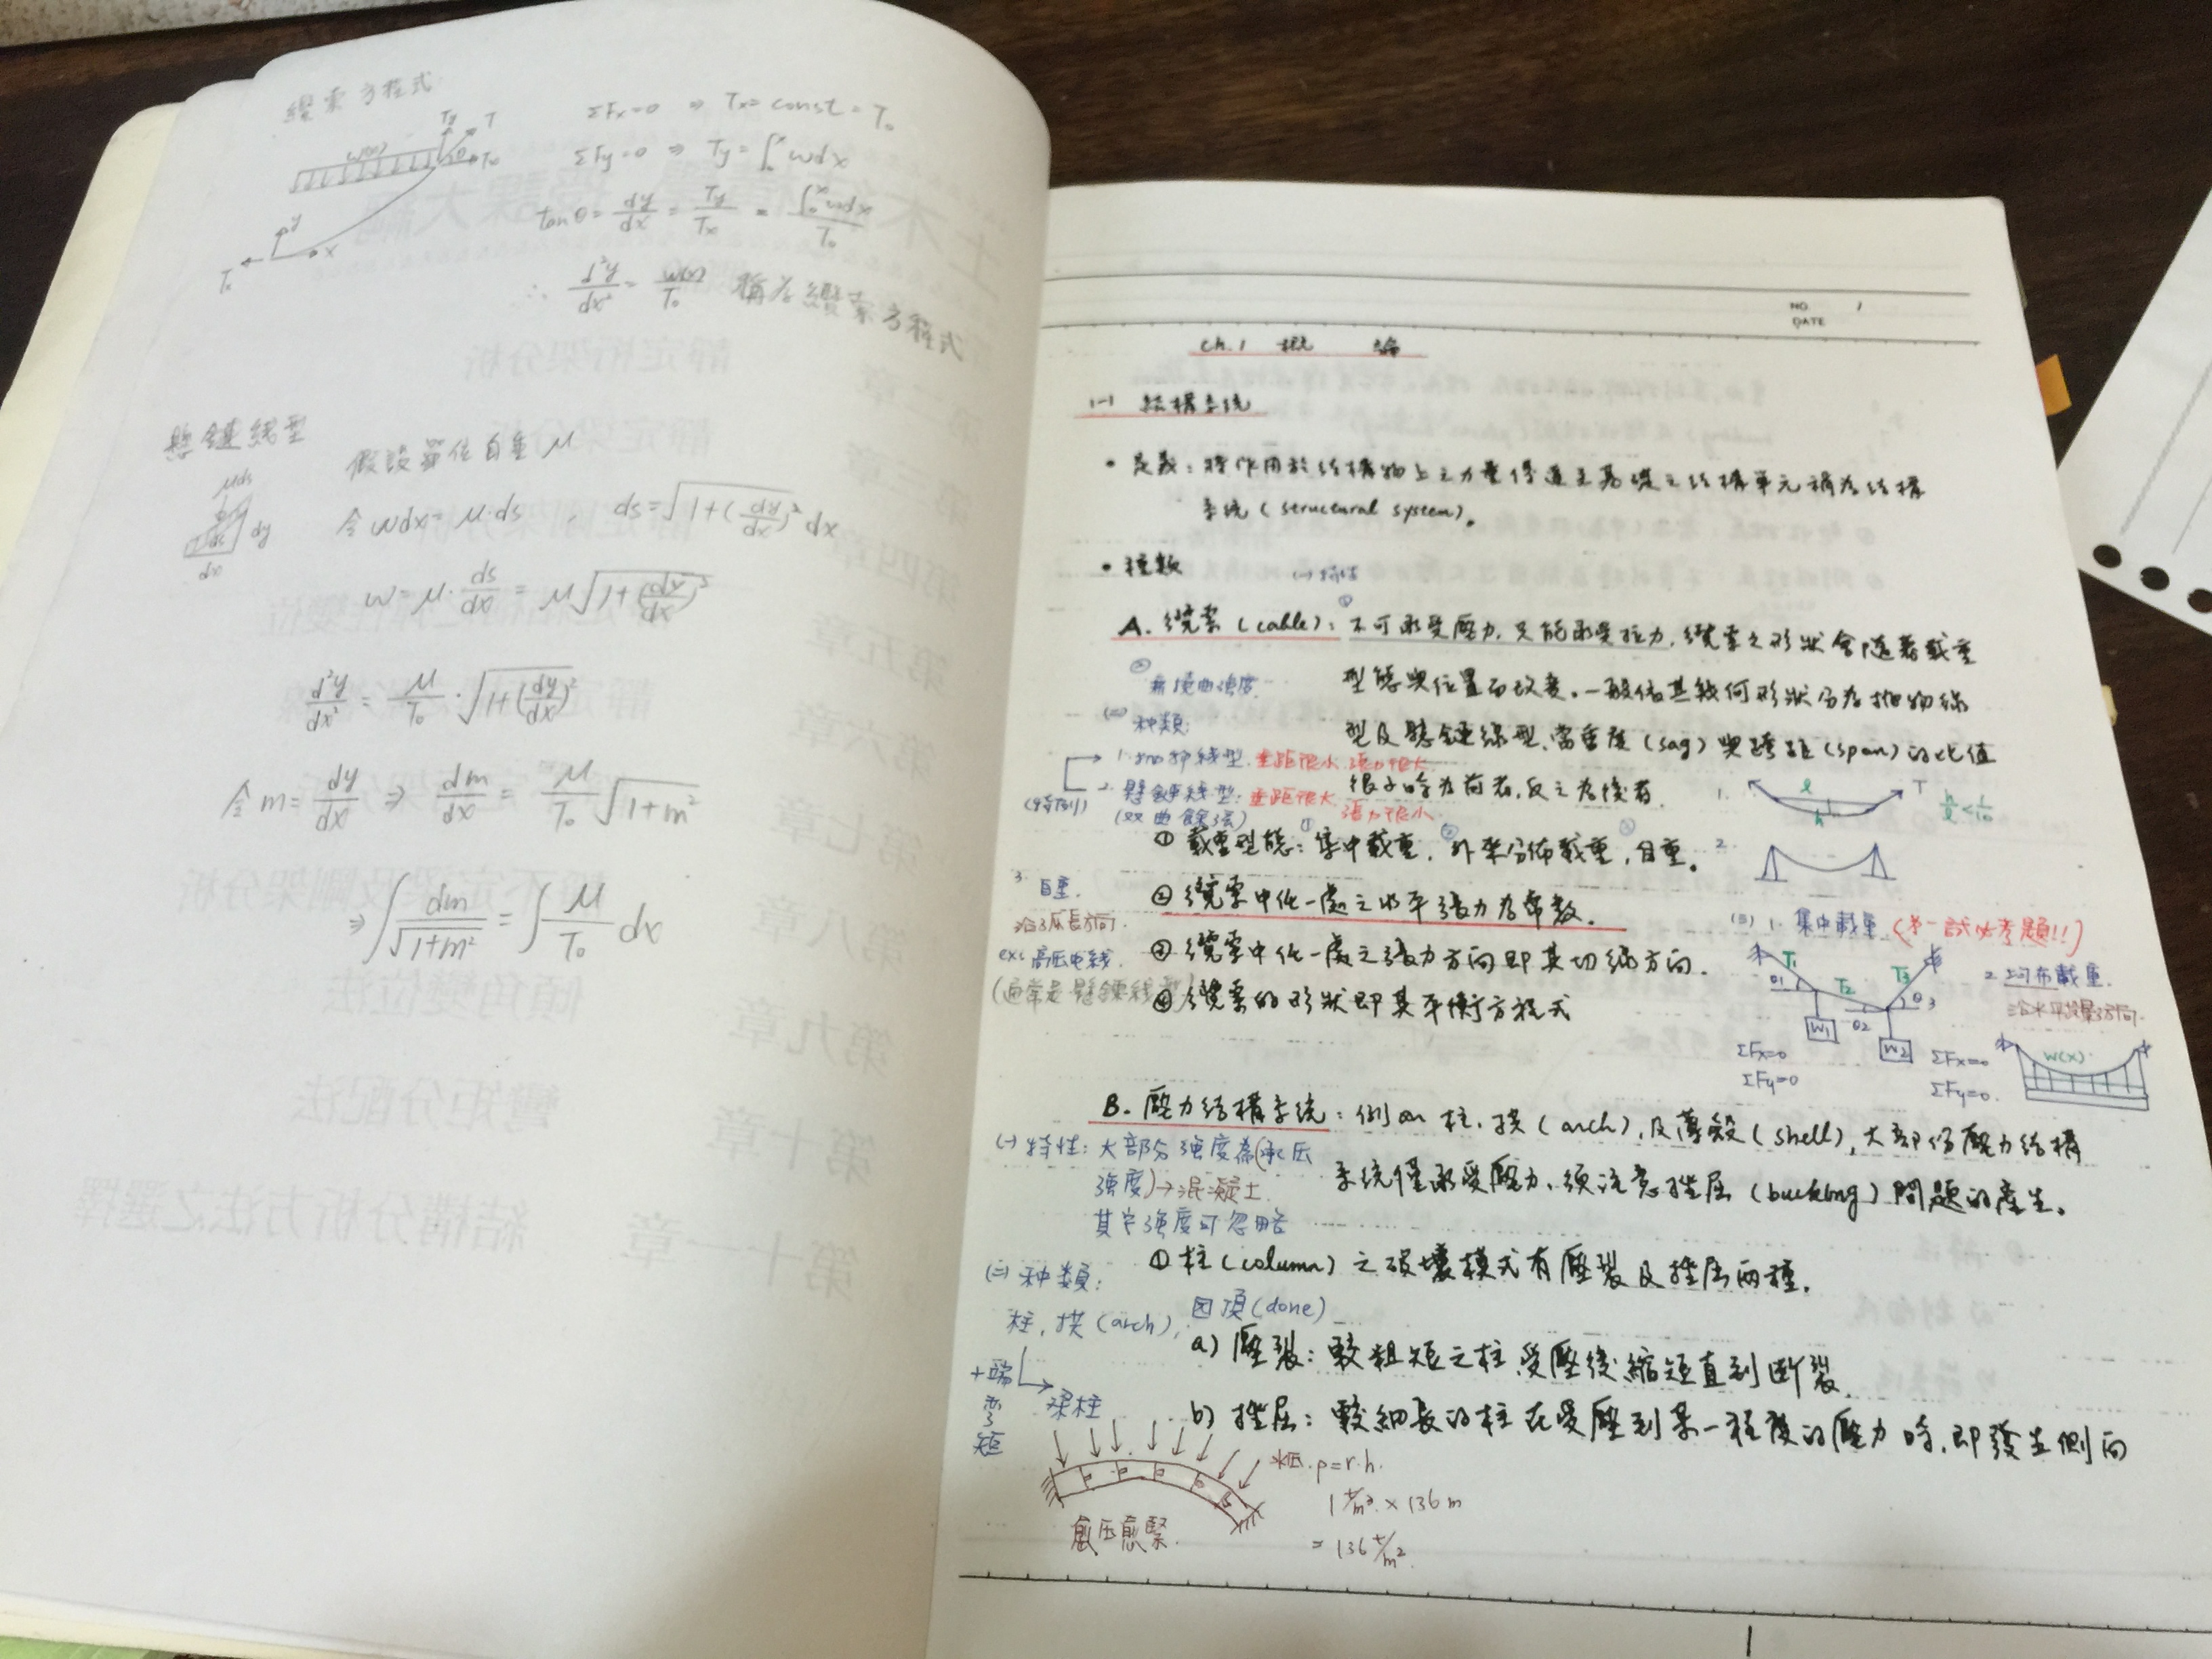 纜索方程式
w(x)
Ty
T
θ
Tx
y
x
T₀
ΣFx=0 ⇒ Tx=const=T₀
ΣFy=0 ⇒ Ty=∫₀ˣwdx
tanθ=dy/dx=Ty/Tx=∫₀ˣwdx/T₀
∴ d²y/dx²=w(x)/T₀ 稱為纜索方程式
懸鏈線型
假設單位自重μ
μds
ds
dy
dx
令wdx=μ·ds , ds=√(1+(dy/dx)²)dx
w=μ·ds/dx=μ√(1+(dy/dx)²)
d²y/dx²=μ/T₀·√(1+(dy/dx)²)
令m=dy/dx ⇒ dm/dx=μ/T₀√(1+m²)
⇒∫dm/√(1+m²)=∫μ/T₀ dx
NO. 1
DATE
Ch.1 概 論
1-1 結構系統
• 定義:將作用於結構物上之力量傳遞至基礎之結構單元稱為結構
系統(structural system)。
• 種類
(一)特性
A. 纜索(cable):①不可承受壓力,只能承受拉力,纜索之形狀會隨著載重
② 無撓曲強度.
型態與位置而改變。一般依其幾何形狀分為拋物線
(二)种類:
型及懸鏈線型,當垂度(sag)與跨距(span)的比值
1. 拋物線型.垂距很小,張力很大
很小時為前者,反之為後者.
2. 懸鏈線型:垂距很大,張力很小.
(双曲餘弦)
(特例)
1.
l
h
T
h/l<1/10
① 載重型態:①集中載重,②外來分佈載重,③自重。
2.
② 纜索中任一處之水平張力為常數.
3. 自重.
沿弧長方向.
ex: 高压电线.
(通常是懸鏈線型)
③ 纜索中任一處之張力方向即其切線方向.
④ 纜索的形狀即其平衡方程式
(三) 1. 集中載重 (第一試必考題!!)
T₁
T₂
T₃
θ1
θ2
θ3
W1
W2
ΣFx=0
ΣFy=0
2. 均布載重.
沿水平投影方向.
W(x)
ΣFx=0
ΣFy=0.
B. 壓力結構系統:例如柱,拱(arch),及薄殼(shell),大部份壓力結構
系統僅承受壓力,須注意挫屈(buckling)問題的產生。
(一)特性:大部分強度為(承压
強度)→混凝土.
其它強度可忽略
① 柱(column)之破壞模式有壓裂及挫屈兩種.
(二)种類:
柱,拱(arch),圆頂(done)
+端弯矩
梁柱
a) 壓裂:較粗短之柱受壓後縮短直到斷裂.
b) 挫屈:較細長的柱在受壓到某一程度的壓力時,即發生側向
愈压愈緊.
水压.P=r·h.
1 t/m³ × 136 m
= 136 t/m².
1